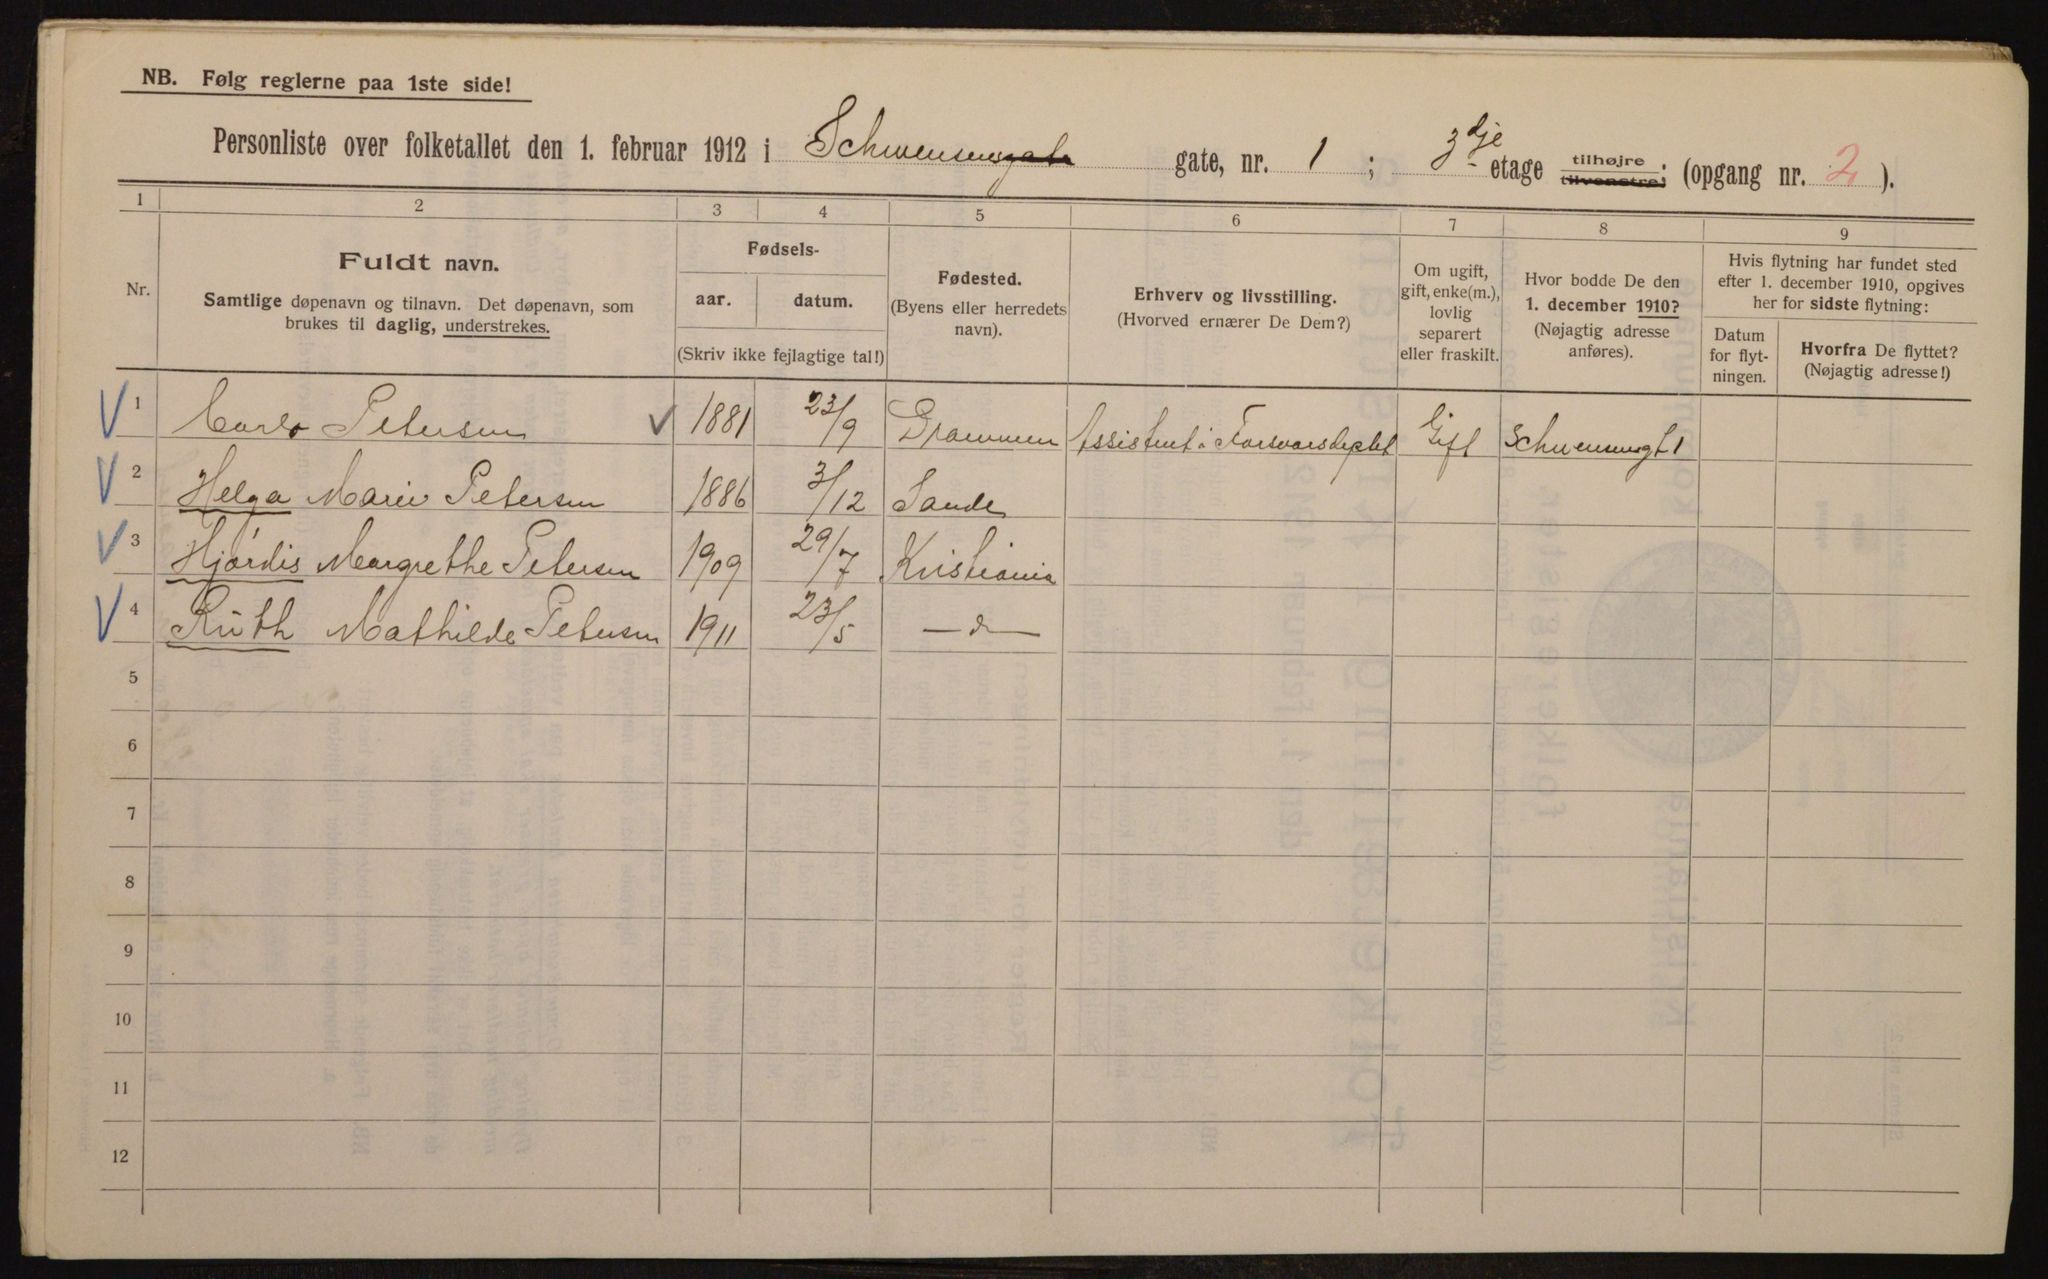 NB. Følg reglerne paa 1ste side!
Personliste over folketallet den 1. februar 1912 i Schwensensgate gate, nr. 1 ; 3dje etage tilhøjre tilvenstre; (opgang nr. 2 ).
1 2 3 4 5 6 7 8 9
Nr.
Fuldt navn.
Samtlige døpenavn og tilnavn. Det døpenavn, som
brukes til daglig, understrekes.
Fødsels-
aar. datum.
(Skriv ikke fejlagtige tal!)
Fødested.
(Byens eller herredets
navn).
Erhverv og livsstilling.
(Hvorved ernærer De Dem?)
Om ugift,
gift, enke(m.),
lovlig
separert
eller fraskilt.
Hvor bodde De den
1. december 1910?
(Nøjagtig adresse
anføres).
Hvis flytning har fundet sted
efter 1. december 1910, opgives
her for sidste flytning:
Datum
for flyt-
ningen.
Hvorfra De flyttet?
(Nøjagtig adresse!)
1 Carlo Petersen 1881 23/9 Drammen Assistent i Forsvarsdeptet Gift Schwensensgt 1
2 Helga Marie Petersen 1886 3/12 Sande
3 Hjørdis Margrethe Petersen 1909 29/7 Kristiania
4 Ruth Mathilde Petersen 1911 23/5 —"—
5
6
7
8
9
10
11
12